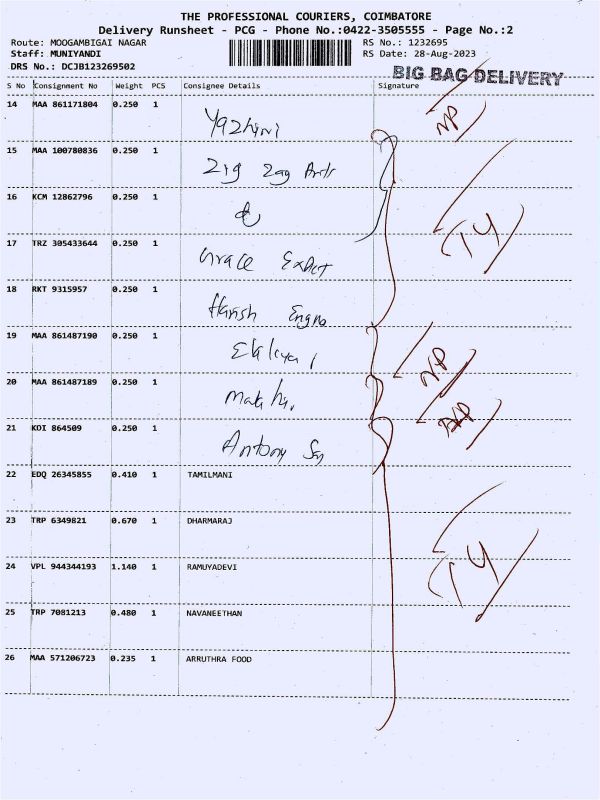 THE PROFESSIONAL COURIERS, COIMBATORE
Delivery Runsheet - PCG - Phone No.:0422-3505555 - Page No.:2
Route: MOOGAMBIGAI NAGAR RS No.: 1232695
Staff: MUNIYANDI RS Date: 28-Aug-2023
DRS No.: DCJB123269502
BIG BAG DELIVERY
S No Consignment No Weight PCS Consignee Details Signature
14 MAA 861171804 0.250 1 Yazhini NP
15 MAA 100780836 0.250 1 Zig Zag
16 KCM 12862796 0.250 1 TY
17 TRZ 305433644 0.250 1 Grace
18 RKT 9315957 0.250 1 Harish
19 MAA 861487190 0.250 1 NP
20 MAA 861487189 0.250 1
21 KDI 864509 0.250 1 Antony
22 EDQ 26345855 0.410 1 TAMILMANI
23 TRP 6349821 0.670 1 DHARMARAJ
24 VPL 944344193 1.140 1 RAMUYADEVI TY
25 TRP 7081213 0.480 1 NAVANEETHAN
26 MAA 571206723 0.235 1 ARRUTHRA FOOD